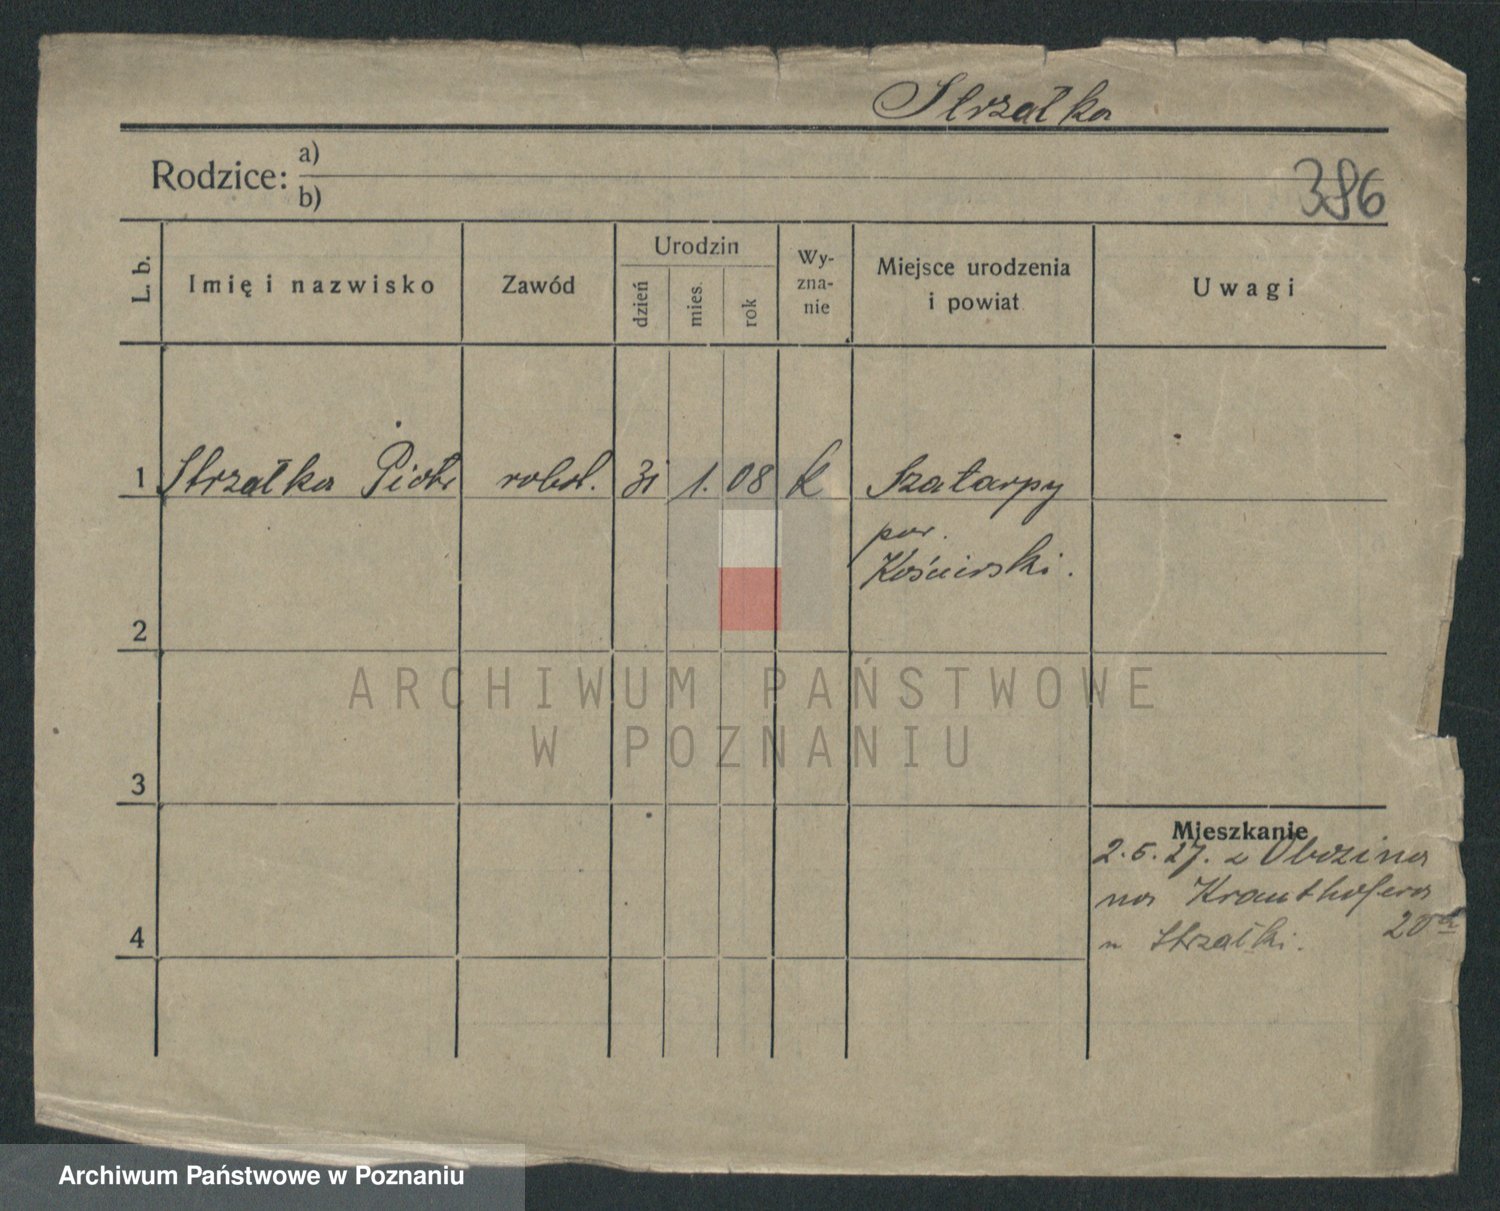 Strzałka
Rodzice: a)
b)
386
L. b.
Imię i nazwisko
Zawód
Urodzin
dzień
mies.
rok
Wy-
zna-
nie
Miejsce urodzenia
i powiat
Uwagi
1 Strzałka Piotr robot. 31 1. 08 k Szatarpy
pow.
Kościerski.
2
3
4
Mieszkanie
2.5.27. z Obozina
na Krauthofera
u Strzałki. 20a
ARCHIWUM PAŃSTWOWE
W POZNANIU
Archiwum Państwowe w Poznaniu